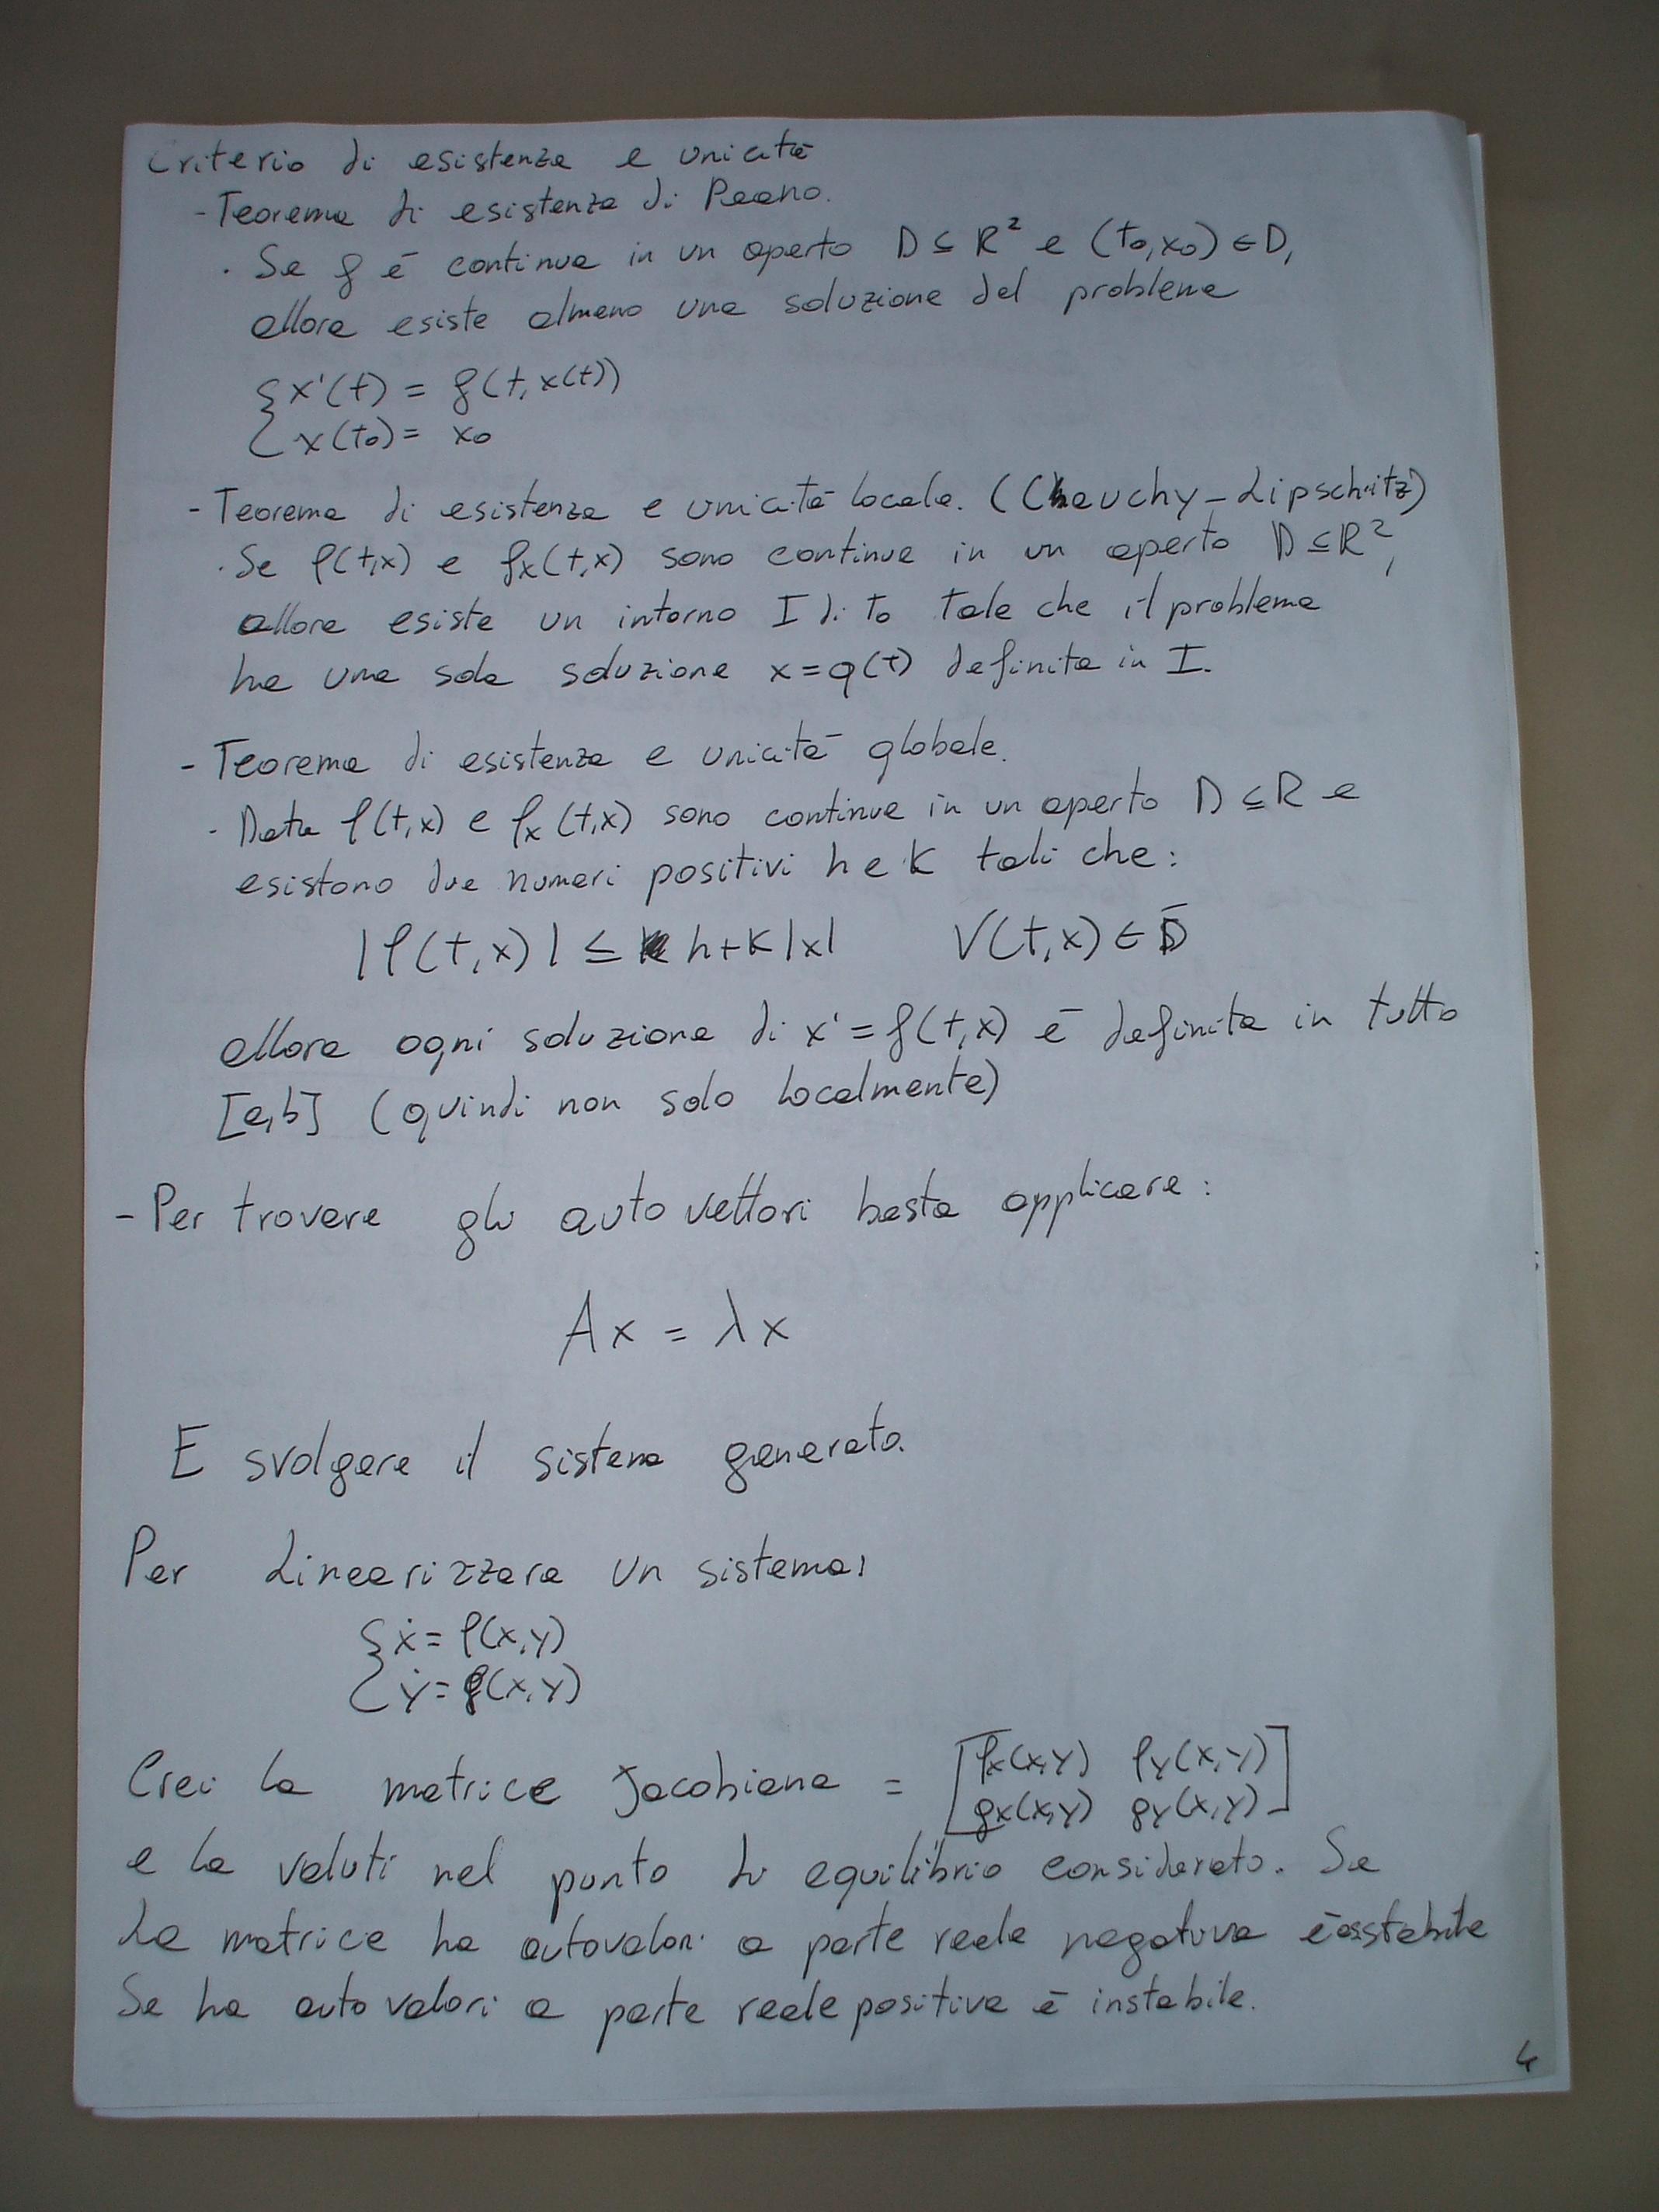 Criterio di esistenza e unicità
- Teorema di esistenza di Peano.
. Se f è continua in un aperto D ⊆ R² e (t₀,x₀) ∈ D,
allora esiste almeno una soluzione del problema
{ x'(t) = f(t,x(t))
x(t₀) = x₀
- Teorema di esistenza e unicità locale. (Chauchy-Lipschitz)
. Se f(t,x) e fx(t,x) sono continue in un aperto D ⊆ R²,
allora esiste un intorno I di t₀ tale che il problema
ha una sola soluzione x=φ(t) definita in I.
- Teorema di esistenza e unicità globale.
. Data f(t,x) e fx(t,x) sono continue in un aperto D ⊆ R e
esistono due numeri positivi h e K tali che:
|f(t,x)| ≤ h+K|x| ∀(t,x) ∈ D
allora ogni soluzione di x'=f(t,x) è definita in tutto
[a,b] (quindi non solo localmente)
- Per trovare gli autovettori basta applicare:
Ax = λx
E svolgere il sistema generato.
Per Linearizzare un sistema:
{ ẋ = f(x,y)
ẏ = g(x,y)
Crei la matrice Jacobiana = [ fx(x,y) fy(x,y)
gx(x,y) gy(x,y) ]
e la valuti nel punto di equilibrio considerato. Se
La matrice ha autovalori a parte reale negativa è asstabile
Se ha autovalori a parte reale positiva è instabile.
4